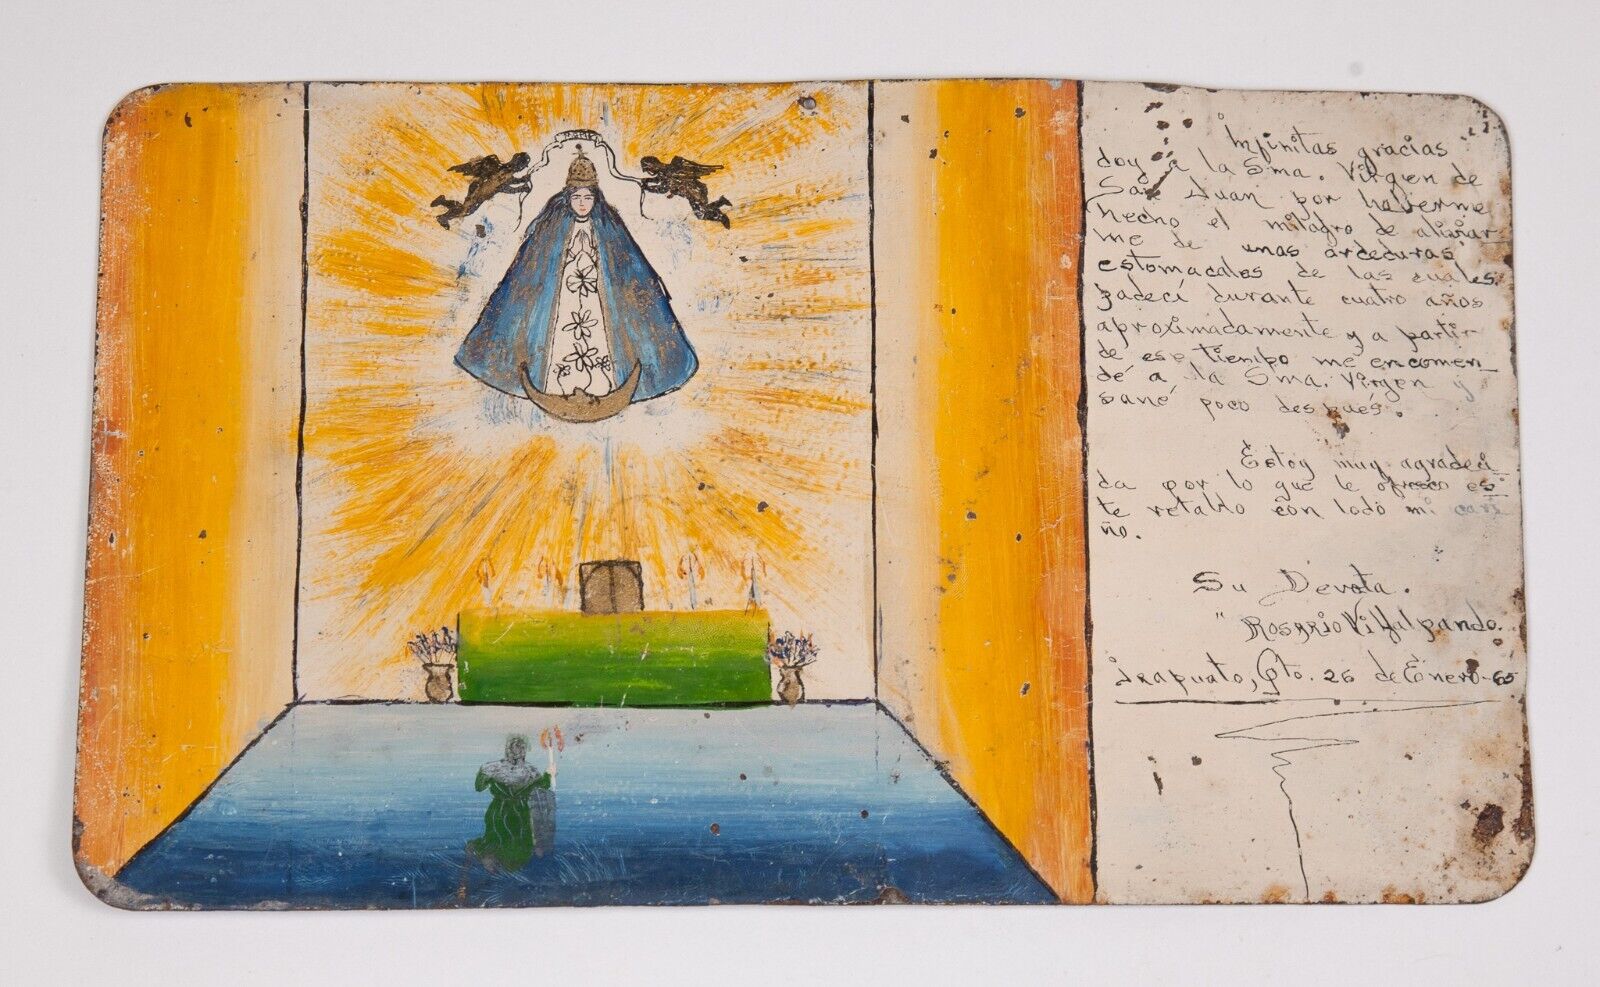 Infinitas gracias
doy a la Sma. Virgen de
San Juan por haberme
hecho el milagro de aliviar
me de unas ardeduras
estomacales de las cuales
padecí durante cuatro años
aproximadamente y a partir
de ese tiempo me encomen_
dé a la Sma. Virgen y
sané poco después.
Estoy muy agradeci
da por lo que le ofresco es
te retablo con todo mi cari
ño.
Su Devota.
" Rosario Villalpando.
Irapuato, Gto. 26 de Enero-65